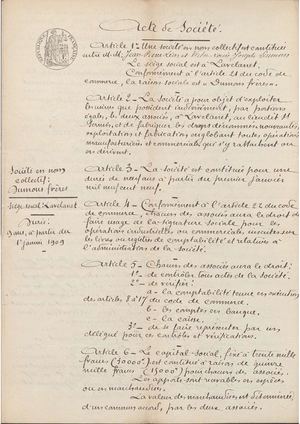 Acte de Société.
Article 1. Une société en nom collectif est constituée
entre M.M. Jean-Pierre Léon et Victor-Louis-Joseph
Le siège social est à Lavelanet.
Conformément à l'article 21 du code de
commerce, la raison sociale est "Dumons frères".
Article 2. La Société a pour objet d'exploiter
les usines que possèdent indivisément, par portions
égales, les deux associés, à Lavelanet, au lieudit
et de fabriquer les draps dénommés nouveautés,
exploitations et fabrication englobant toutes opérations
manufacturières et commerciales qui s'y rattachent ou
en dérivent.
Société en nom
collectif:
Dumons frères
siège social Lavelanet
Durée:
9 ans, à partir du
1er janvier 1909
Article 3. La société est constituée pour une
durée de neuf ans à partir du premier janvier
mil neuf cent neuf.
Article 4. Conformément à l'article 22 du code
de commerce, chacun des associés aura le droit de
faire usage de la signature sociale pour les
opérations industrielles ou commerciales inscrites sur
les livres ou registres de comptabilité et relatives à
l'administration de la société.
Article 5. Chacun des associés aura le droit:
1º de contrôler tous actes de la Société.
2º de vérifier:
a - la comptabilité tenue en exécution
des articles 8 à 17 du code de commerce.
b - les comptes en banque.
c - la caisse.
3º de se faire représenter par un
délégué pour ces contrôles et vérifications.
Article 6. Le capital social, fixé à trente mille
francs (30000f) est constitué à raison de quinze
mille francs (15000f) pour chacun des associés.
Les apports sont versables en espèces
ou en marchandises.
La valeur des marchandises est déterminée,
d'un commun accord, par les deux associés.